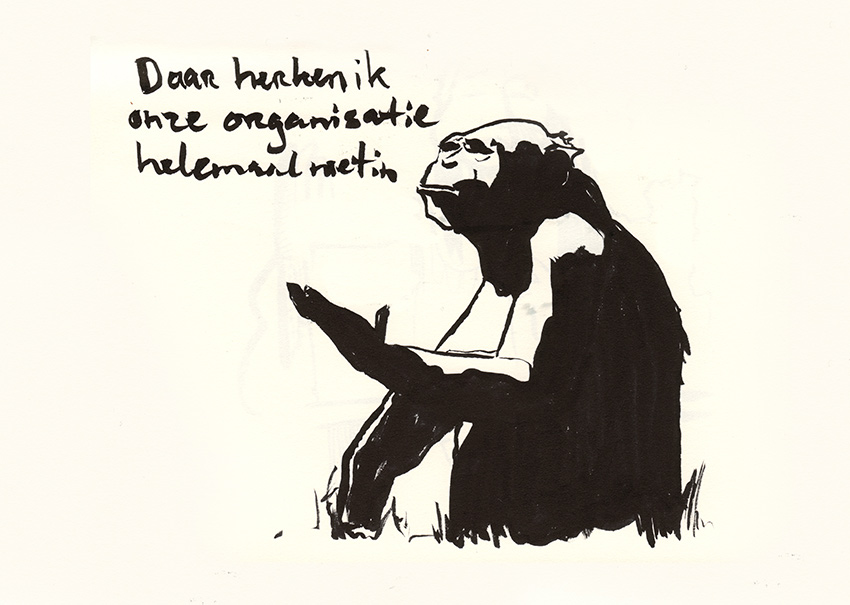 Daar herken ik
onze organisatie
helemaal niet in